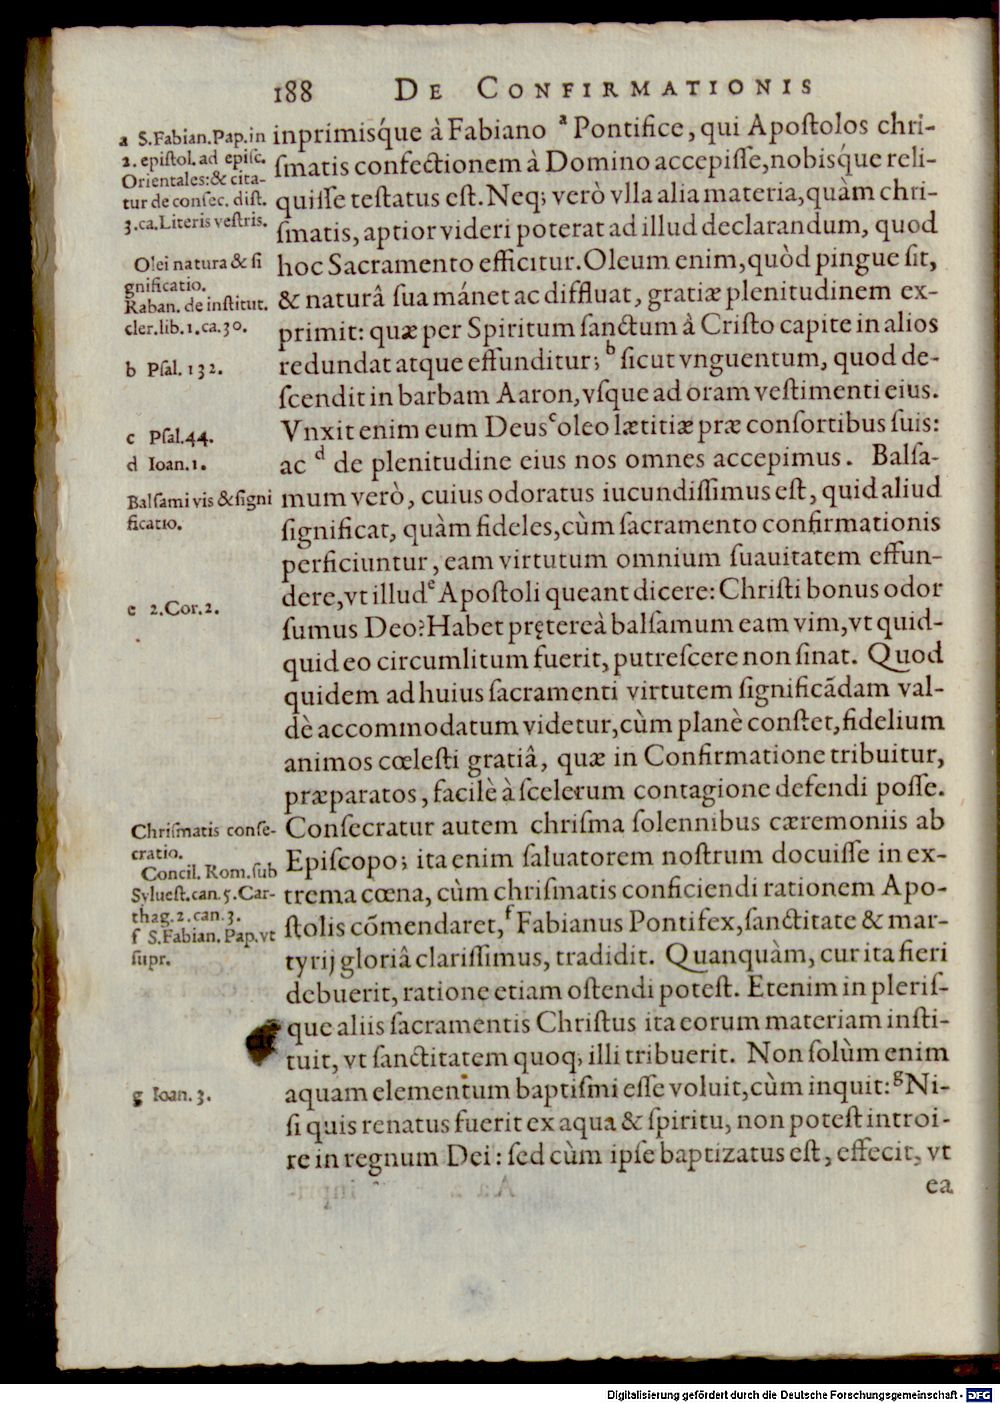 188 DE CONFIRMATIONIS
a S.Fabian.Pap.in
2. epiſtol. ad epiſc.
Orientales:& cita-
tur de conſec. diſt.
3.ca.Literis veſtris.
Olei natura & ſi
gnificatio.
Raban. de inſtitut.
cler.lib.1.ca.30.
b Pſal. 132.
c Pſal.44.
d Ioan.1.
Balſami vis & ſigni
ficatio.
e 2.Cor.2.
Chriſmatis conſe-
cratio.
Concil. Rom. ſub
Sylueſt.can.5.Car-
thag.2.can.3.
f S.Fabian.Pap.vt
ſupr.
g Ioan. 3.
inprimiśque à Fabiano ᵃ Pontifice, qui Apoſtolos chri-
ſmatis confectionem à Domino accepiſſe, nobiśque reli-
quiſſe teſtatus eſt. Neq; verò vlla alia materia, quàm chri-
ſmatis, aptior videri poterat ad illud declarandum, quod
hoc Sacramento efficitur. Oleum enim, quòd pingue ſit,
& naturâ ſua mánet ac diffluat, gratiæ plenitudinem ex-
primit: quæ per Spiritum ſanctum à Criſto capite in alios
redundat atque effunditur; ᵇ ſicut vnguentum, quod de-
ſcendit in barbam Aaron, vſque ad oram veſtimenti eius.
Vnxit enim eum Deus ᶜ oleo lætitiæ præ conſortibus ſuis:
ac ᵈ de plenitudine eius nos omnes accepimus. Balſa-
mum verò, cuius odoratus iucundiſſimus eſt, quid aliud
ſignificat, quàm fideles, cùm ſacramento confirmationis
perficiuntur, eam virtutum omnium ſuauitatem effun-
dere, vt illud ᵉ Apoſtoli queant dicere: Chriſti bonus odor
ſumus Deo? Habet pręterea̍ balſamum eam vim, vt quid-
quid eo circumlitum fuerit, putreſcere non ſinat. Quod
quidem ad huius ſacramenti virtutem ſignificãdam val-
dè accommodatum videtur, cùm planè conſtet, fidelium
animos cœleſti gratiâ, quæ in Confirmatione tribuitur,
præparatos, facilè à ſcelerum contagione defendi poſſe.
Conſecratur autem chriſma ſolennibus cæremoniis ab
Epiſcopo; ita enim ſaluatorem noſtrum docuiſſe in ex-
trema cœna, cùm chriſmatis conficiendi rationem Apo-
ſtolis cõmendaret, ᶠ Fabianus Pontifex, ſanctitate & mar-
tyrij gloriâ clariſſimus, tradidit. Quanquàm, cur ita fieri
debuerit, ratione etiam oſtendi poteſt. Etenim in pleriſ-
que aliis ſacramentis Chriſtus ita eorum materiam inſti-
tuit, vt ſanctitatem quoq; illi tribuerit. Non ſolùm enim
aquam elementum baptiſmi eſſe voluit, cùm inquit: ᵍ Ni-
ſi quis renatus fuerit ex aqua & ſpiritu, non poteſt introi-
re in regnum Dei: ſed cùm ipſe baptizatus eſt, effecit, vt
ea
Digitalisierung gefördert durch die Deutsche Forschungsgemeinschaft - DFG